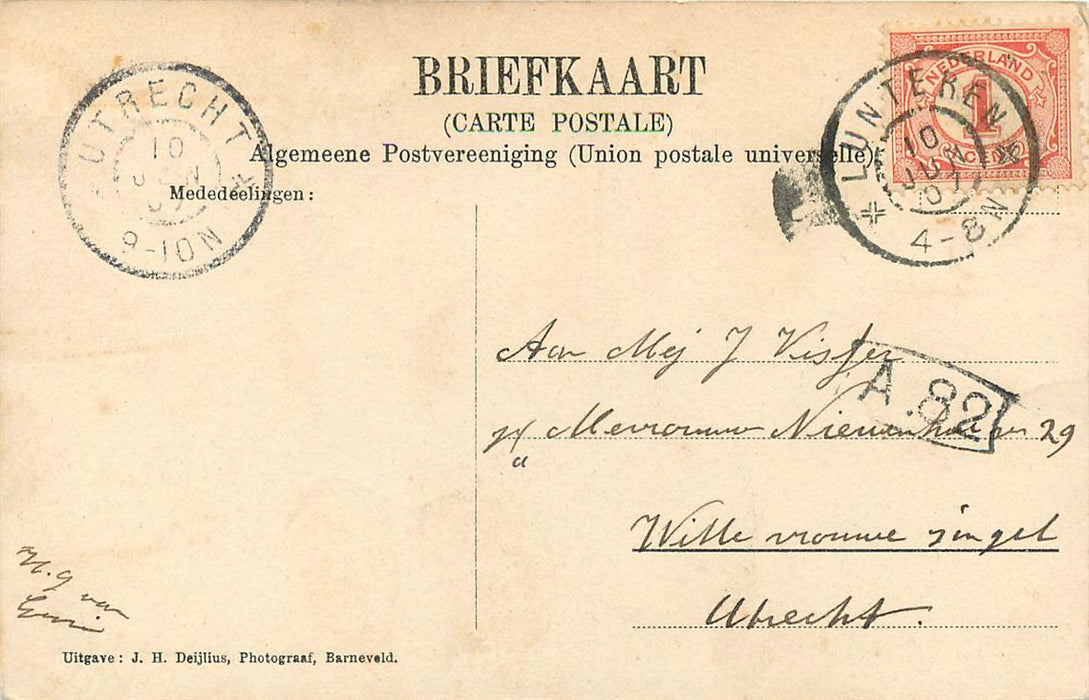 BRIEFKAART
(CARTE POSTALE)
Algemeene Postvereeniging (Union postale universelle)
Mededeelingen:
UTRECHT
10
JUN
07
9-10N
NEDERLAND
1
CENT
LUNTEREN
10
JUN
07
4-8N
Aan Mej J Visser
A.82
p/a Mevrouw Nieuwenhuizen 29
Witte vrouwe singel
Utrecht.
H.g van
Uitgave: J. H. Deijlius, Photograaf, Barneveld.